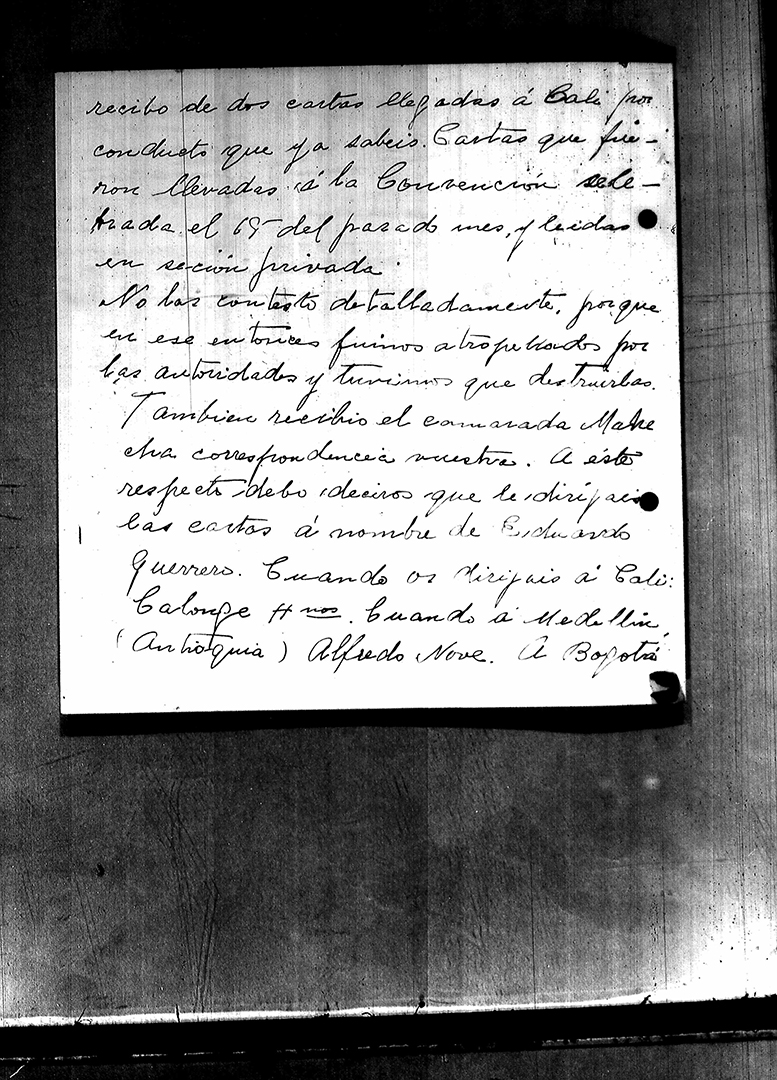 recibo de dos cartas llegadas á Cali por
conducto que ya sabeis. Cartas que fue-
ron llevadas á la Convención sele-
brada el 15 del pasado mes, y leidas
en seción privada.
No las contesto detalladamente, porque
en ese entonces fuimos atropellados por
las autoridades y tuvimos que destruirlas.
Tambien recibio el camarada Mahe
cha correspondencia vuestra. A éste
respecto debo deciros que le dirijais
las cartas á nombre de Eduardo
Guerrero. Cuando os dirijais á Cali:
Calonge Hnos. Cuando á Medellin
(Antioquia) Alfredo Nove. A Bogotá